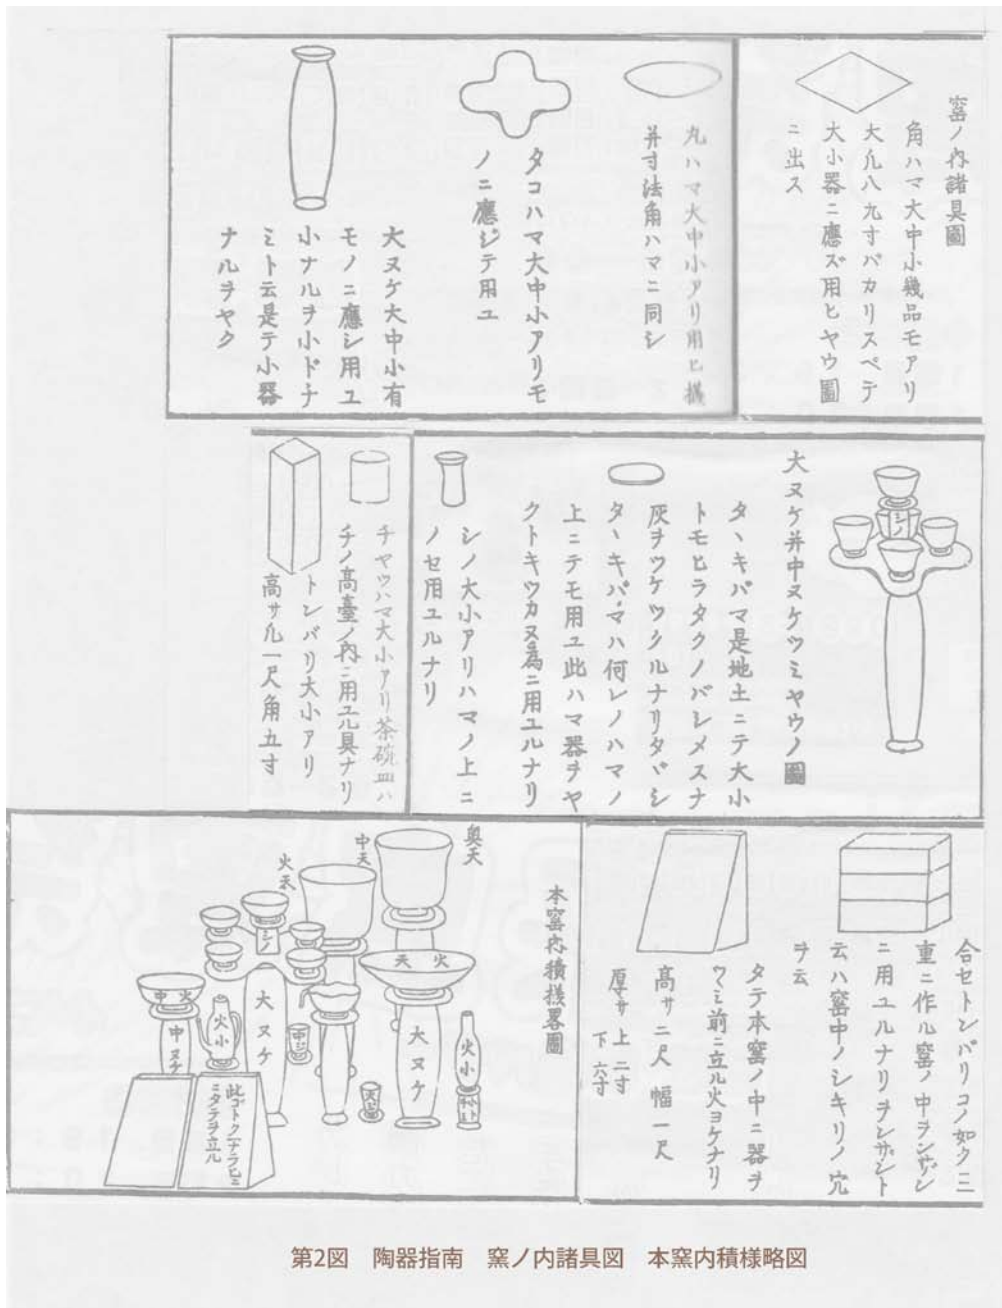 窑ノ内諸具圖
角ハマ大中小幾品モアリ
大凢八九寸バカリスベテ
大小器ニ應ズ用ヒヤウ圖
ニ出ス
丸ハマ大中小アリ用ヒ様
并寸法角ハマニ同シ
タコハマ大中小アリモ
ノニ應ジテ用ユ
大ヌケ大中小有
モノニ應シ用ユ
小ナルヲ小ドチ
ミト云是テ小器
ナルヲヤク
大ヌケ并中ヌケツミヤウノ圖
シン
タヽキバマ是地土ニテ大小
トモヒラタクノバシメスナ
灰ヲツケツクルナリタヾシ
タヽキバマハ何レノハマノ
上ニテモ用ユ此ハマ器ヲヤ
クトキツカヌ為ニ用ユルナリ
シノ大小アリハマノ上ニ
ノセ用ユルナリ
チヤツハマ大小アリ茶碗皿ハ
チノ高臺ノ内ニ用ユル具ナリ
トンバリ大小アリ
高サ凢一尺角五寸
合セトンバリコノ如ク三
重ニ作ル窑ノ中ヲンザン
ニ用ユルナリヲンザント
云ハ窑中ノシキリノ穴
ヲ云
タテ本窑ノ中ニ器ヲ
ツミ前ニ立ル火ヨケナリ
高サ二尺 幅一尺
厚サ 上二寸
下六寸
本窑内積様畧圖
奥天
中天
火天
シン
天火
中火
大ヌケ
中ヌケ
火小
大ヌケ
火小
此ゴトク一ナラビニ
ニタテヲ立ル
第2図 陶器指南 窯ノ内諸具図 本窯内積様略図